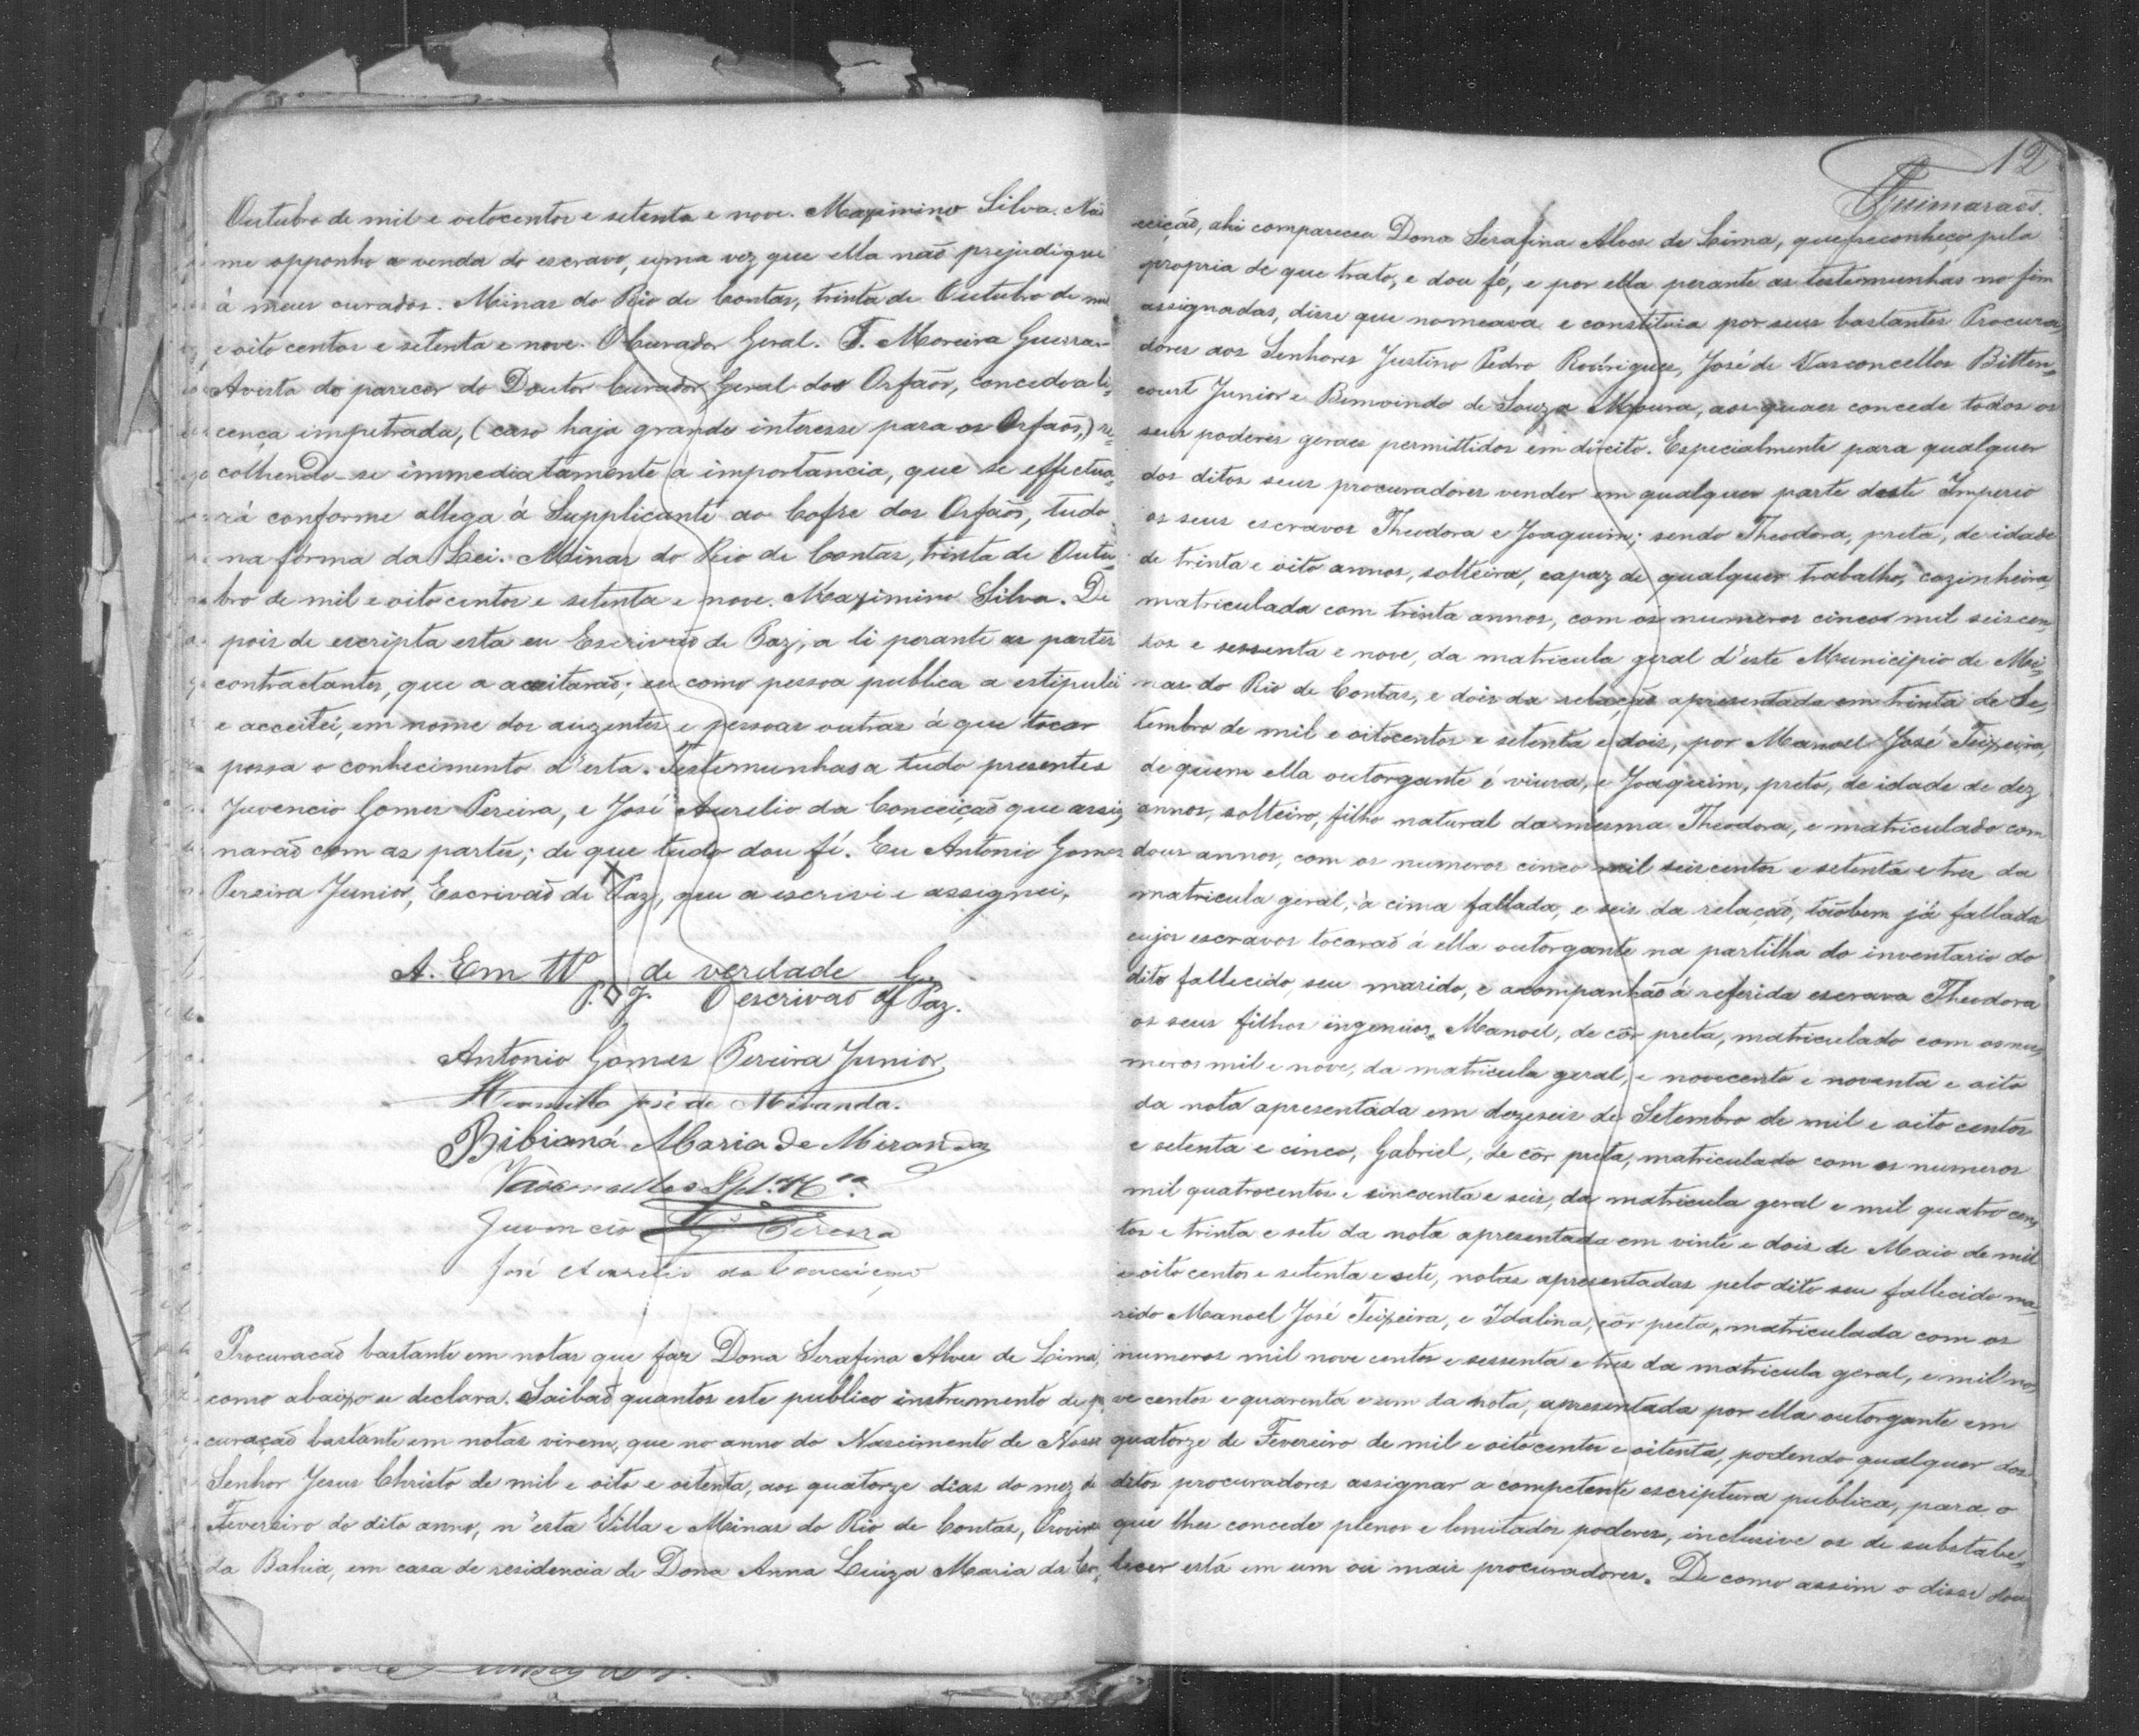 Outubro de mil e oitocentos e setenta e nove. Maximino Silva. Não
me opponho a venda do escravo, uma vez que ella não prejudique
á meus curados. Minas do Rio de Contas, trinta de Outubro de mil
e oito centos e setenta e nove. O Curador Geral. T. Moreira Guerra.
Avista do parecer do Doutor Curador Geral dos Orfaõs, concedo a li-
cença impetrada, (caso haja grande interesse para os Orfaõs,) re-
colhendo-se immediatamente á importancia, que se effectua-
rá conforme allega á Supplicante ao Cofre dos Orfaõs, tudo
na forma da Lei. Minas do Rio de Contas, trinta de Outu-
bro de mil e oito centos e setenta e nove. Maximino Silva. De
pois de escripta esta eu Escrivaõ de Paz, a li perante as partes
contractantes, que a aceitaraõ; eu como pessoa publica a estipulei
e acceitei, em nome dos auzentes e pessoas outras á que tocar
possa o conhecimento d'esta. Testemunhas a tudo presentes
Juvencio Gomes Pereira, e José Aurelio da Conceiçaõ que assig-
naraõ com as partes; de que tudo dou fé. Eu Antonio Gomes
Pereira Junior, Escrivaõ de Paz, que a escrivi e assignei.
A. Em Tto de verdade G.
P. J. O escrivaõ de Paz.
Antonio Gomes Pereira Junior
José de Miranda.
Bibiana Maria de Miranda
Juvencio Gs Pereira
José Aurelio da Conceiçaõ
Procuracaõ bastante em notas que faz Dona Serafina Alves de Lima,
como abaixo se declara. Saibaõ quantos este publico instrumento de p
curaçaõ bastante em notas virem, que no anno do Nascimento de Nosso
Senhor Jesus Christo de mil e oito e oitenta, aos quatorze dias do mez de
Fevereiro do dito anno, n'esta Villa e Minas do Rio de Contas, Provincia
da Bahia, em casa de residencia de Dona Anna Luiza Maria da Con-
12
Guimaraẽs.
ceiçaõ, ahi compareceu Dona Serafina Alves de Lima, que reconheço pela
propria de que trato, e dou fé, e por ella perante as testemunhas no fim
assignadas, disse que nomeava e constituia por seus bastantes Procura
dores aos Senhores Justino Pedro Rodrigues, José de Vasconcellos Bitten-
court Junior e Bemvindo de Souza Moura, aos quaes concede todos os
seus poderes geraes permittidos em direito. Especialmente para qualquer
dos ditos seus procuradores vender em qualquer parte deste Imperio
os seus escravos Theodora e Joaquim; sendo Theodora, preta, de idade
de trinta e oito annos, solteira, capaz de qualquer trabalho, cozinheira,
matriculada com trinta annos, com os numeros cinco mil seiscen-
tos e sessenta e nove, da matricula geral d'este Municipio de Mi-
nas do Rio de Contas, e dois da relaçaõ apresentada em trinta de Se-
tembro de mil e oitocentos e setenta e dois, por Manoel José Teixeira,
de quem ella outorgante é viuva, e Joaquim, preto, de idade de dez
annos, solteiro, filho natural da mesma Theodora, e matriculado com
dous annos, com os numeros cinco mil seiscentos e setenta e tres da
matricula geral, à cima fallada, e seis da relaçaõ, taõbem já fallada
cujos escravos tocaraõ á ella outorgante na partilha do inventario do
dito fallecido, seu marido, e acompanhaõ á referida escrava Theodora
os seus filhos ingenuos, Manoel, de côr preta, matriculado com os nu-
meros mil e nove, da matricula geral, e novecento e noventa e oito
da nota apresentada em dezeseis de Setembro de mil e oito centos
e setenta e cinco, Gabriel, de côr preta, matriculado com os numeros
mil quatrocentos e sincoenta e seis, da matricula geral e mil quatro cen-
tos e trinta e sete da nota apresentada em vinte e dois de Maio de mil
e oito centos e setenta e sete, notas apresentadas pelo dito seu fallecido ma-
rido Manoel José Teixeira, e Idalina, côr preta, matriculada com os
numeros mil nove centos e sessenta e tres da matricula geral, e mil no-
ve centos e quarenta e um da nota, apresentada por ella outorgante em
quatorze de Fevereiro de mil e oito centos e oitenta, podendo qualquer dos
ditos procuradores assignar a competente escriptura publica, para o
que lhes concede plenos e lemitados poderes, inclusive os de substabe-
lecer esta em um ou mais procuradores. De como assim o disse dou